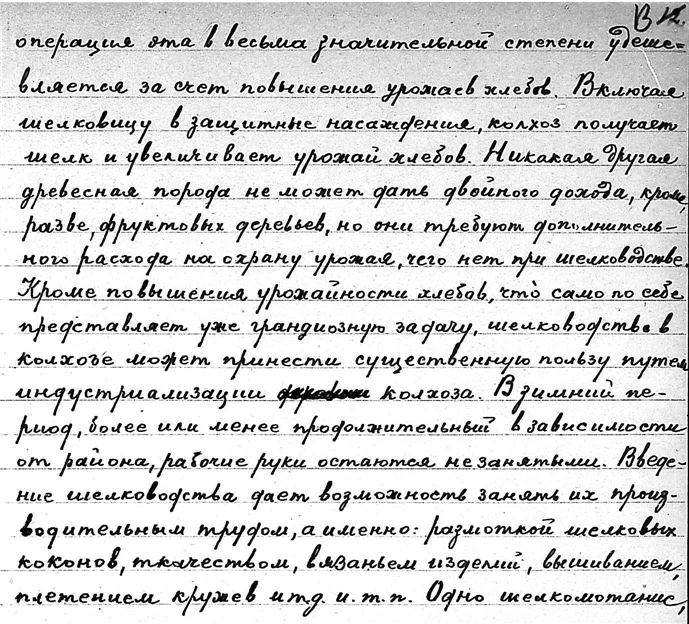 В 12.
операция эта в весьма значительной степени удеше=
вляется за счет повышения урожаев хлебов. Включая
шелковицу в защитные насаждения, колхоз получает
шелк и увеличивает урожай хлебов. Никакая другая
древесная порода не может дать двойного дохода, кроме,
разве, фруктовых деревьев, но они требуют дополнитель-
ного расхода на охрану урожая, чего нет при шелководстве.
Кроме повышения урожайности хлебов, что само по себе
представляет уже грандиозную задачу, шелководство в
колхозе может принести существенную пользу путем
индустриализации колхоза. В зимний пе-
риод, более или менее продолжительный в зависимости
от района, рабочие руки остаются незанятыми. Введе-
ние шелководства дает возможность занять их произ-
водительным трудом, а именно: размоткой шелковых
коконов, ткачеством, вязаньем изделий, вышиванием,
плетением кружев и т.д. и.т.п. Одно шелкомотание,